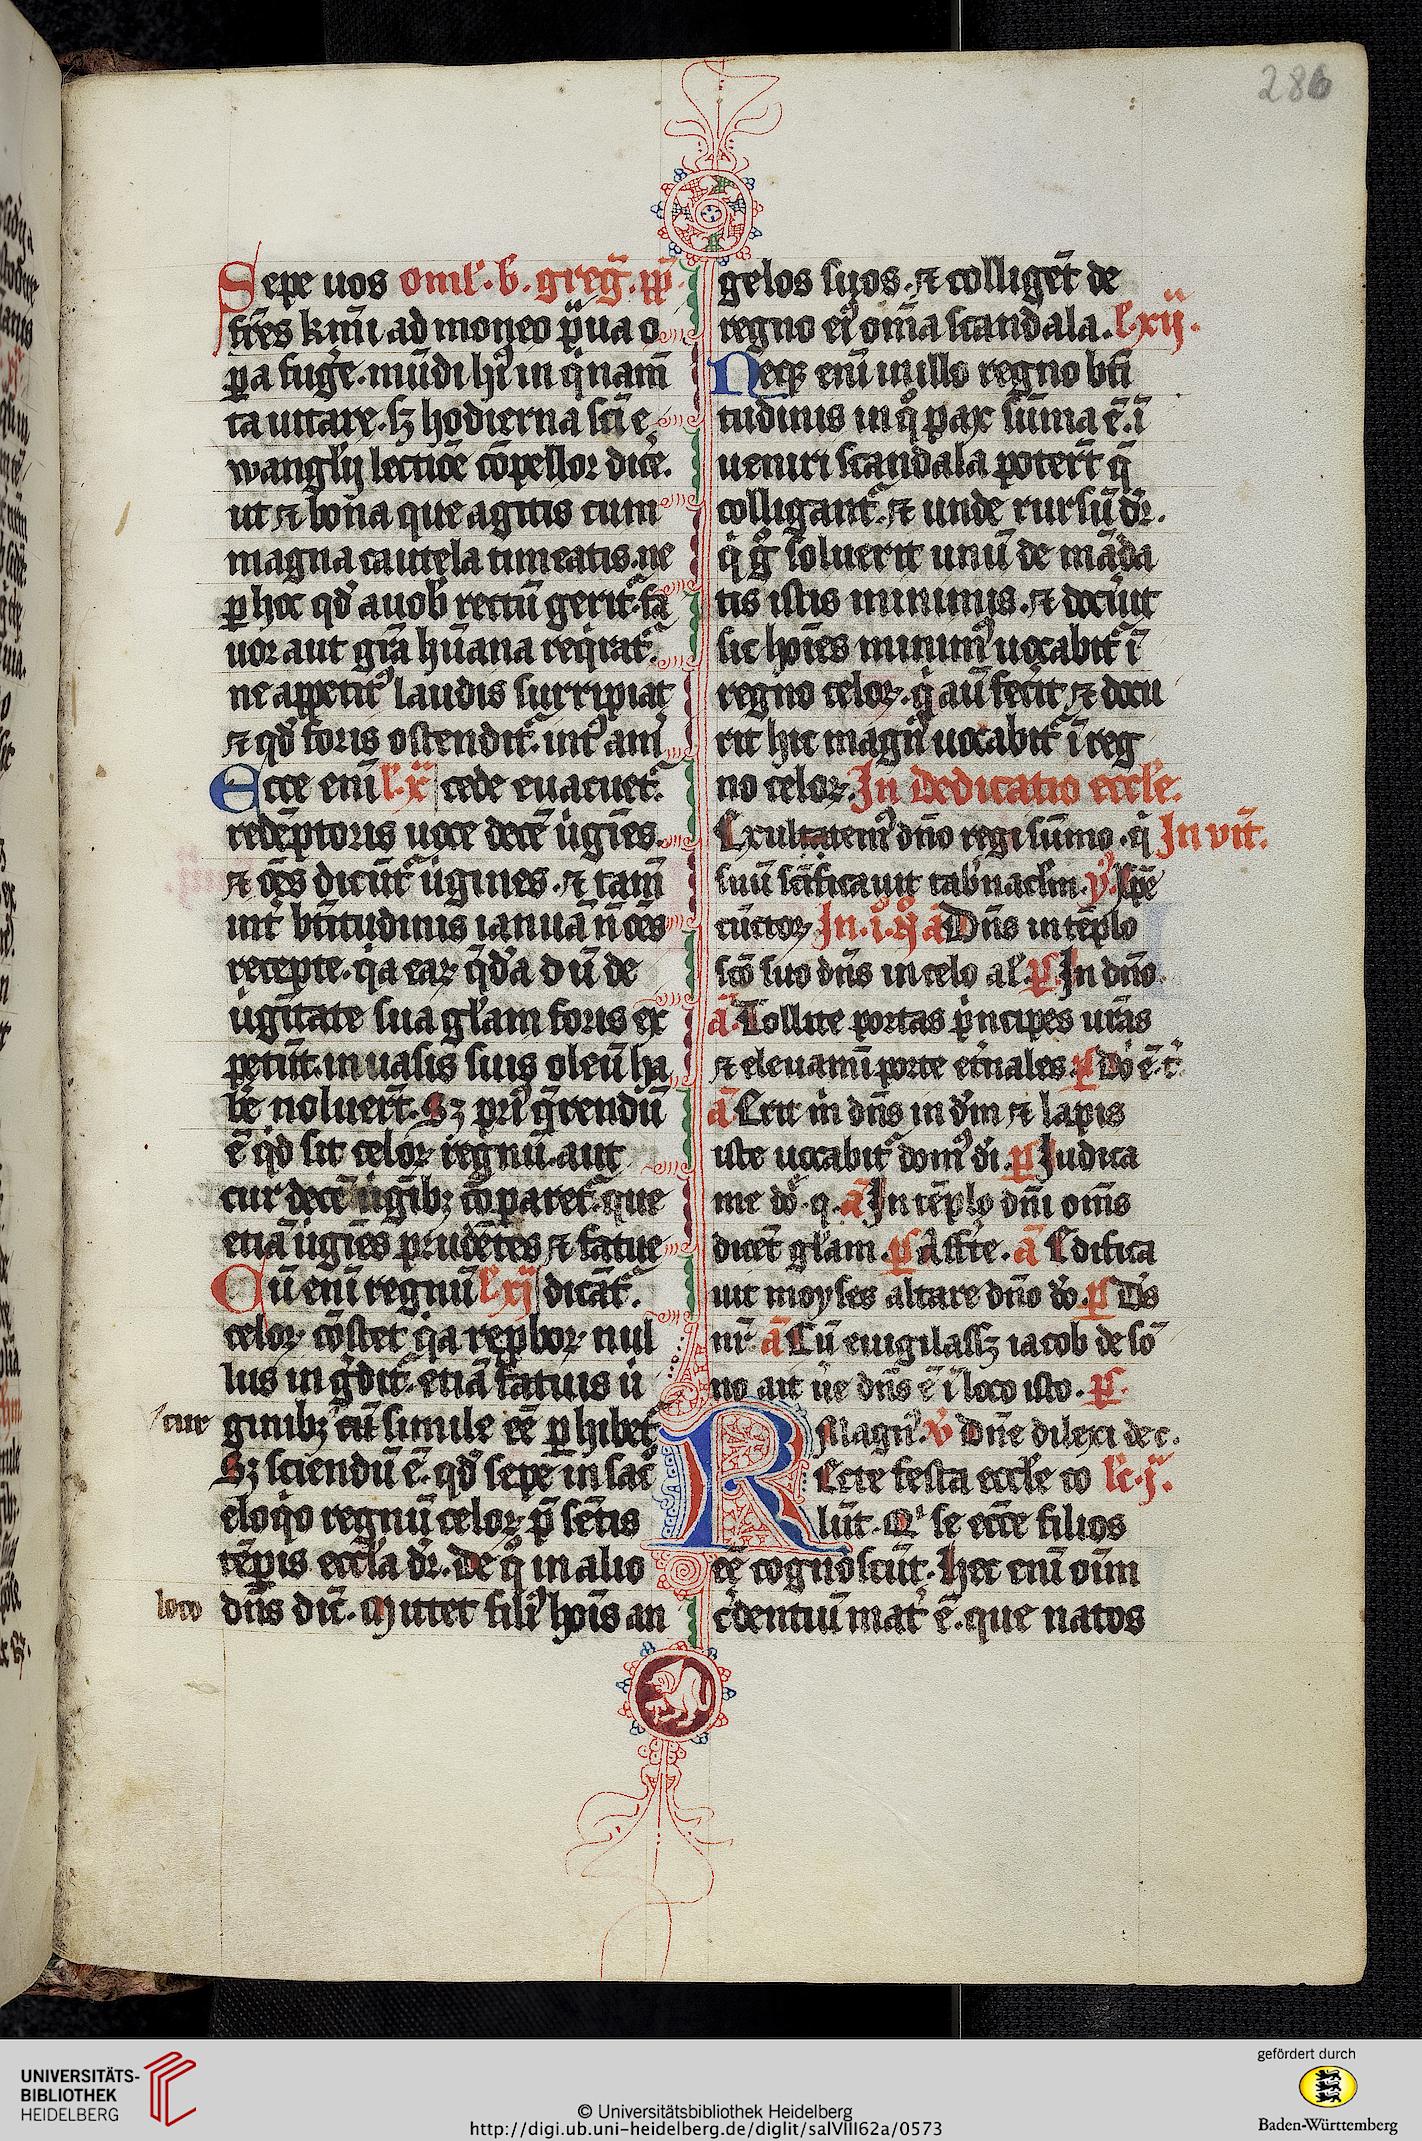 286
Sepe uos omɫ. b. greg̃. pp̄
fr̄es kr̄mi ad moneo p̄ua o
ꝑa fug̾e. mūdi hꝰ in q̇nam̄
ta uitare. sꝫ hodierna sc̄i e
wangɫij lectiōe cōpellor dic̾e.
ut ⁊ bona que agitis cum
magna cautela timeatis. ne
ꝑ hoc qd̾ auob̾ rectū gerit᷑. fa
uor aut gr̄a hūana req̇rat᷑.
ne appetitꝰ laudis surripiat
⁊ qd̾ foris ostendit᷑. int᷑ ami
Ecce enī ɫ. x̄ cede euacuet᷑.
redēptoris uoce decē ùgīes.
⁊ oēs dicūt᷑ ùgines. ⁊ tam̄
int̾ bt̄itudinis ianuā n̄ oēs
recepte. q̇a eaꝝ q̄da dū de
ùgītate sua gɫam foris ex
petūt. in uasis suis oleū ha
b̾e noluer̄t. Sꝫ pri̾ q̄rendū
ē qd̾ sit celoꝝ regnū. aut
cur decē ùgībꝫ cōparet᷑. que
etiā ùgīes prudētes ⁊ fatue
Cū enī regnū ɫ xij dicāt᷑.
celoꝝ cōstet q̇a rep̱boꝝ nul
lus ingdit᷑. etiā fatuis ù
cur ginibꝫ cū simile eē ꝑhibet᷑
Sꝫ sciendū ē. qd̾ sepe in sac̊
eloq̇o regnū celoꝝ p̄sētis
tēpis eccɫa dr̄. De q̊ in alio
loco dn̄s dic̄. Mittet filiꝰ hoīs an
gelos suos. ⁊ colliget̄ de
regno eiꝰ om̄ia scandala. ɫ. xij.
Necꝫ enī ī illo regno bt̄i
tudinis in q̊ pax sūma ē. ī
ueniri scandala poter̄t q̄
colligant᷑. ⁊ unde rursū dr̄.
q̇ g̊ soluerit unū de māda
tis istis minimis. ⁊ docùit
sic hoīes minimꝰ uocabit᷑ ī
regno celoꝝ. q̇ aū fecit ⁊ docu
rit hic magnꝰ uocabit᷑ ī reg
no celoꝝ. In Dedicatio eccɫe.
Exultatemꝰ dn̄o regi sūmo. q̇ In vit̄.
suū sc̄ificauit tab̾nacɫm. p̾s. Ipē
cūctoꝝ In. i. ꝗ̊ ā Dn̄s in tēplo
sc̄o suo dn̄s in celo aɫ. p̄s. In dn̄o.
ā. Tollite portas ṗncipes ur̄as
⁊ eleuamī porte et̾nales. p̄s Dō ē. t̾.
ā Erit m̄ dn̄s in dm̄ ⁊ lapis
iste uocabit᷑ domꝰ di. p̄s Iudica
me dō. q. ā In tēplo dn̄i om̄s
dicēt gɫam. p̄s Affer̾te. ā Edifica
uit moyses altare dn̄o dō. p̄s Ds̾
nr̄. ā Cū euigilassꝫ iacob de sō
no ait ùe dn̄s ē ī loco isto. p̄s.
Magn̄ꝰ. v̾ Dn̄e dilexi de c̄.
Recte festa eccɫe co ɫc. j.
lūt. Qi se ecc̄e filios
eē cognoscūt. Hec enī oīm
c̾dentiū mat̾ ē. que natos
UNIVERSITÄTS-
BIBLIOTHEK
HEIDELBERG
© Universitätsbibliothek Heidelberg
http://digi.ub.uni-heidelberg.de/diglit/salVIII62a/0573
gefördert durch
Baden-Württemberg